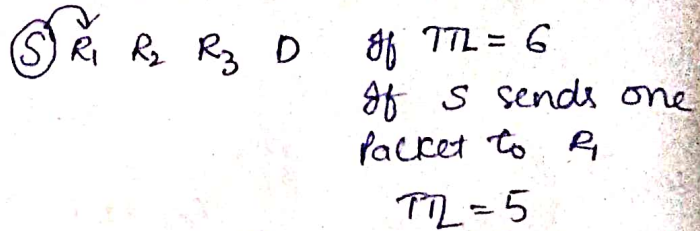 S R₁ R₂ R₃ D If TTL = 6
If S sends one
Packet to R₁
TTL = 5